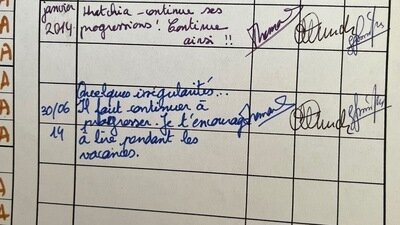 janvier
2014
continue ses
progressions ! Continue
ainsi !!
Quelques irrégularités...
30/06
14
Il faut continuer à
progresser. Je t'encourage
à lire pendant les
vacances.
A
A
A
A
A
A
A
A